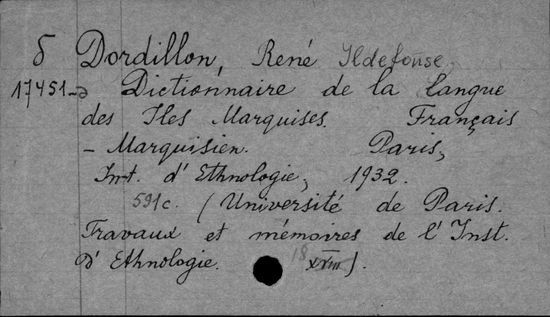 δ Dordillon, René Ildefonse.
17451 Dictionnaire de la langue
des Iles Marquises. Français
- Marquisien. Paris,
Inst. d'Ethnologie, 1932.
591c. (Université de Paris.
Travaux et mémoires de l'Inst.
d'Ethnologie. 18 XVIII).